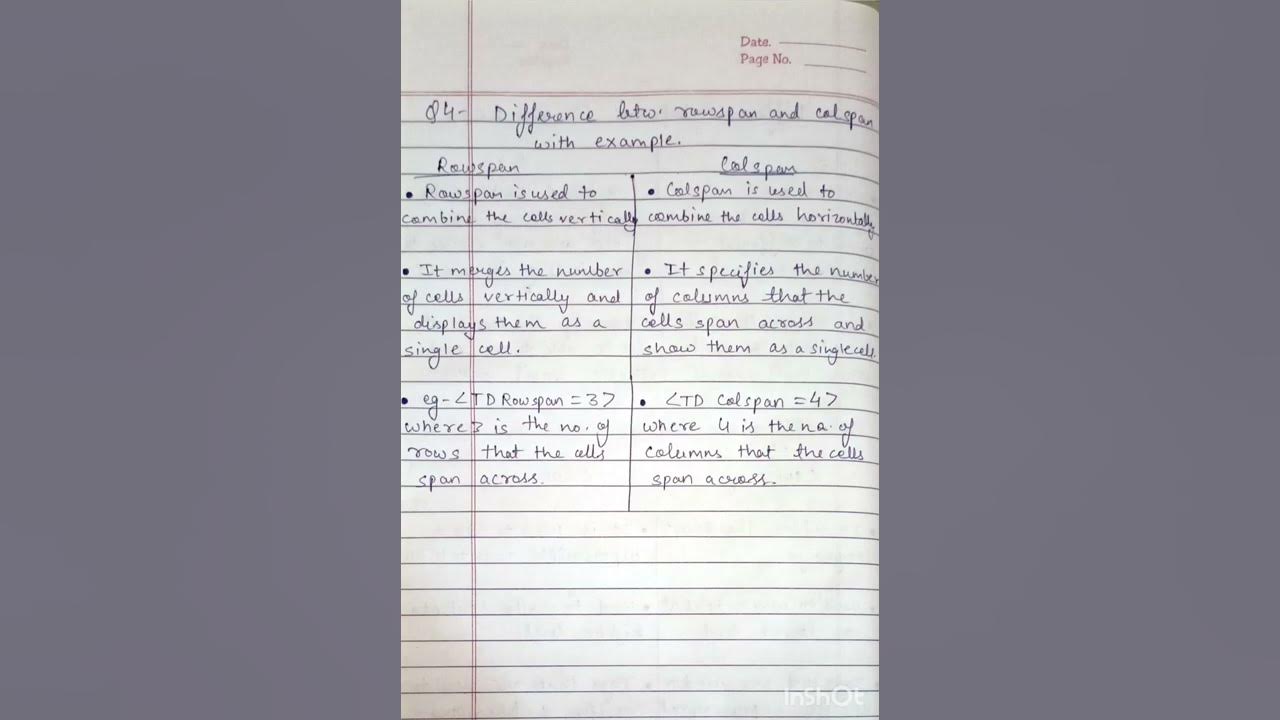 Date.
Page No.
Q4- Difference btw. rowspan and colspan
with example.
Rowspan
• Rowspan is used to
combine the cells vertically
• It merges the number
of cells vertically and
displays them as a
single cell.
• eg- <TD Rowspan = 3>
where 3 is the no. of
rows that the cells
span across.
Colspan
• Colspan is used to
combine the cells horizontally
• It specifies the number
of columns that the
cells span across and
show them as a single cell.
• <TD Colspan = 4>
where 4 is the no. of
columns that the cells
span across.
InShOt